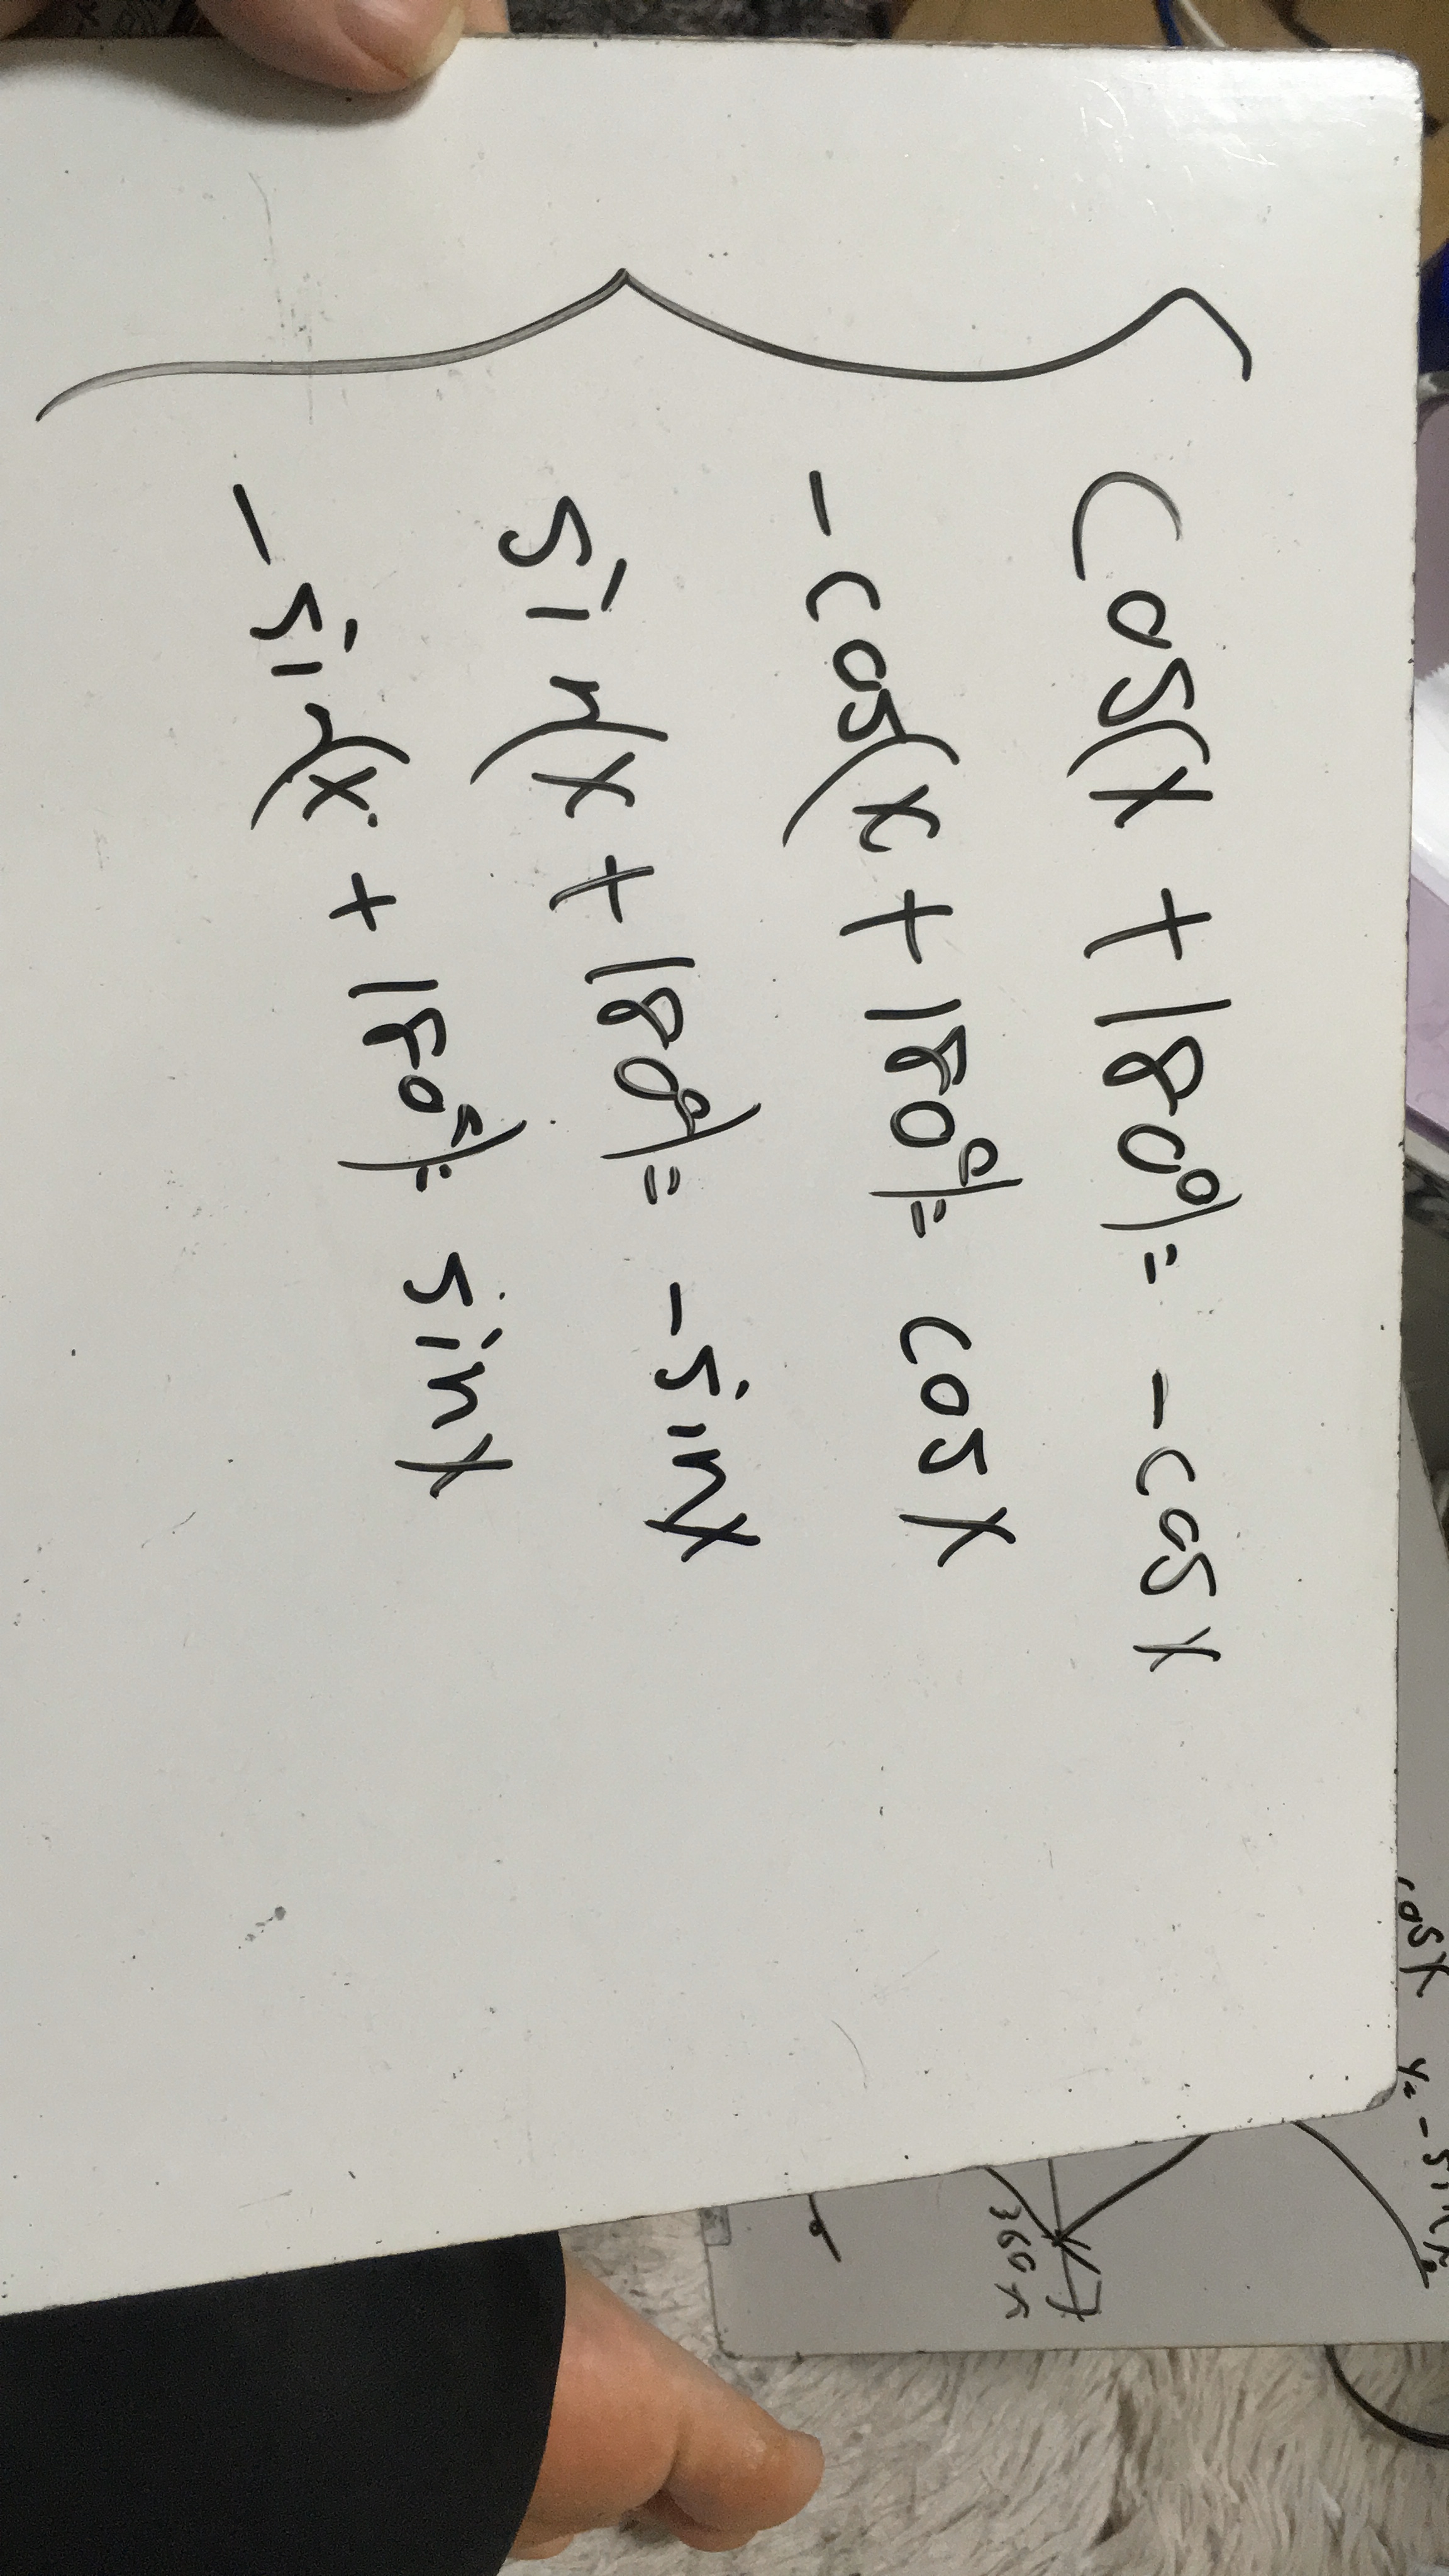 cos(x + 180°) = -cosx
-cos(x + 180°) = cosx
sin(x + 180°) = -sinx
-sin(x + 180°) = sinx
cosx y= -sin
360 x